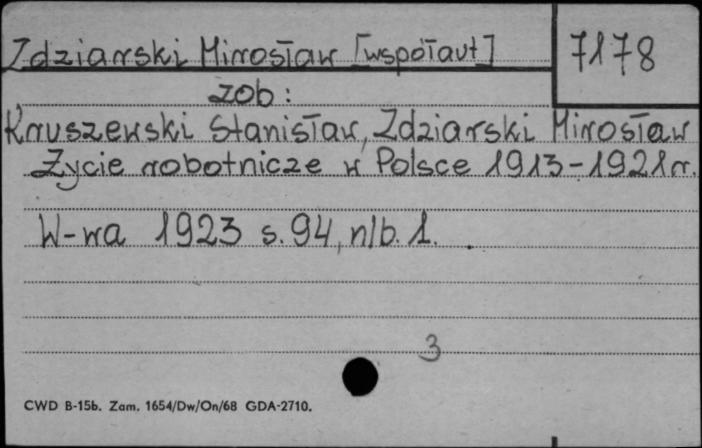 Zdziarski Mirosław [współaut]
7178
zob:
Kruszewski Stanisław, Zdziarski Mirosław
Życie robotnicze w Polsce 1913-1921 r.
W-wa 1923 s. 94, nlb. 1.
3
CWD B-15b. Zam. 1654/Dw/On/68 GDA-2710.